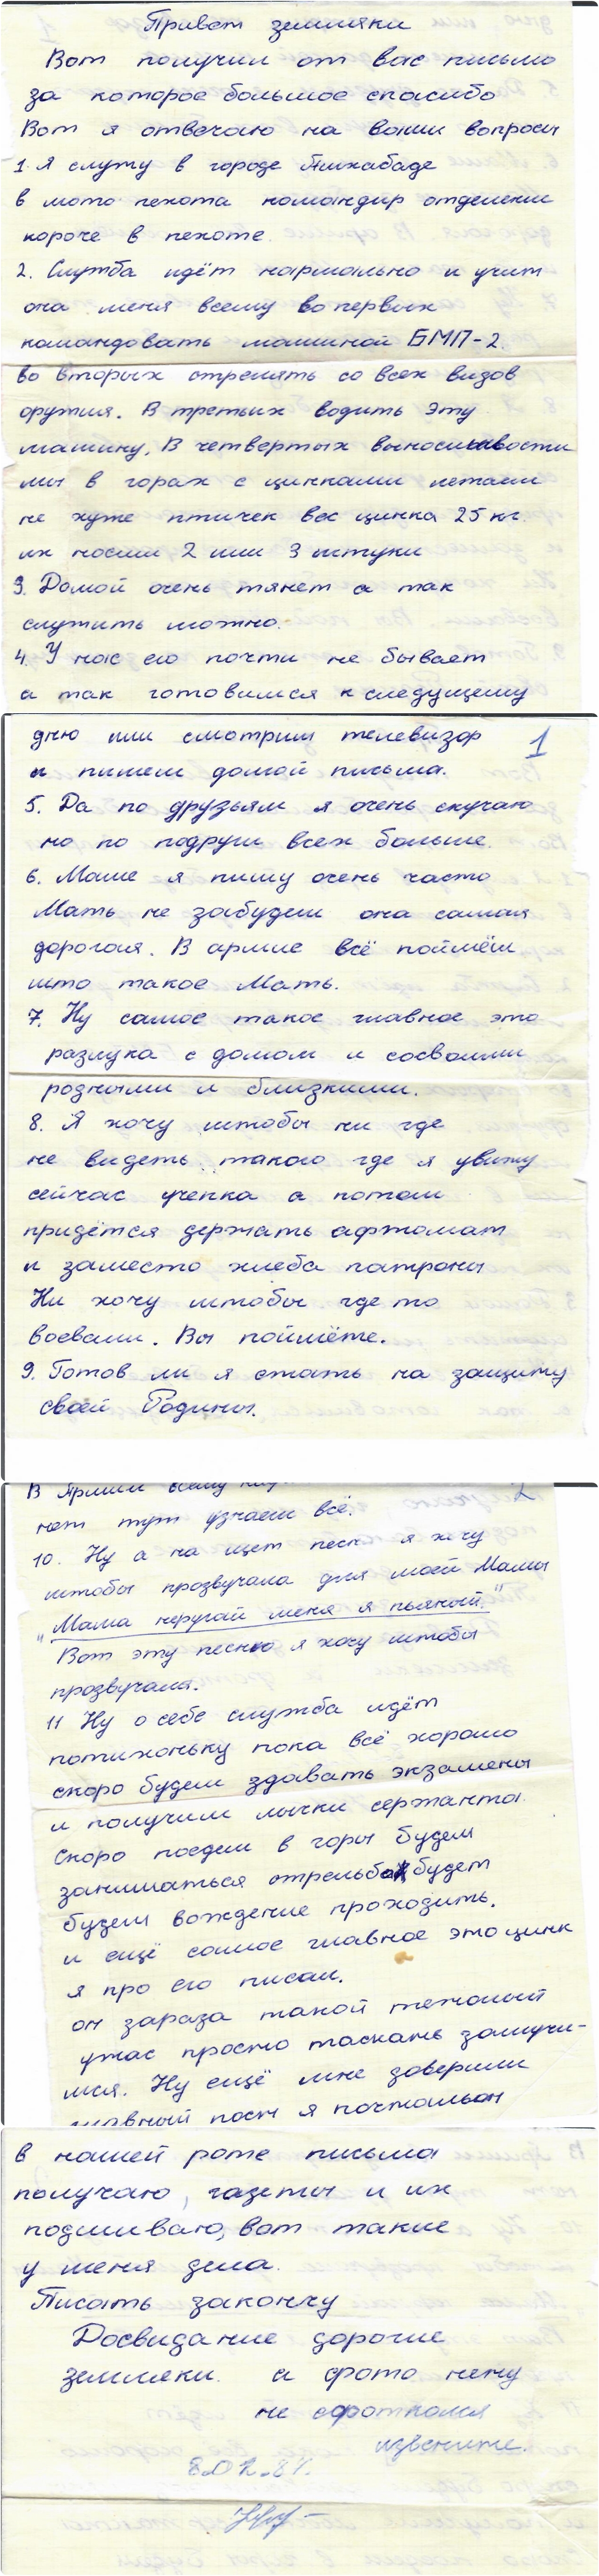 Привет земляки
Вот получил от вас письмо
за которое большое спасибо
Вот я отвечаю на ваши вопросы
1. Я служу в городе Ашхабаде
в мото пехота командир отделении
короче в пехоте
2. Служба идёт нармально и учит
она меня всему во первых
командовать машиной БМП-2.
во вторых стрелять со всех видов
оружия. В третьих водить эту
машину. В четвертых выносиливости
мы в горах с цинками летаем
не хуже птичек вес цинка 25 кг.
их носим 2 или 3 штуки
3. Домой очень тянет а так
служить можно.
4. У нас его почти не бывает
а так готовимся к следущему
дню или смотрим телевизор
1
и пишем домой письма.
5. Да по друзьям я очень скучаю
но по подруги всех больше.
6. Маме я пишу очень часто
Мать не забудем она самая
дорогая. В армие всё поймём
што такое Мать.
7. Ну самое такое главное это
разлука с домом и сосвоими
родными и близкими.
8. Я хочу штобы ни где
не видеть такого где я увижу
сейчас учепка а потом
придётся держать афтомат
и заместо хлеба патроны
Ни хочу штобы где то
воевали. Вы поймёте.
9. Готов ли я стать на защиту
своей Родины.
В Армии всему
2
нет тут узнаем всё.
10. Ну а на щет песн я хочу
штобы прозвучала для моей Мамы
"Мама неругай меня я пьяный."
Вот эту песню я хочу штобы
прозвучала.
11 Ну о себе служба идёт
потихоньку пока всё хорошо
скоро будем здавать экзамены
и получим лычки сержанта.
Скоро поедем в горы будем
заниматься стрельбой будет
будем вождение проходить.
и ещё самое главное это цинк
я про его писал.
он зараза такой тяжолый
ужас просто таскать замучи-
мся. Ну ещё мне заверили
главный пост я почтальон
в нашей роте письма
получаю, газеты и их
подшиваю, вот такие
у меня дела.
Писать закончу
Досвидание дорогие
земляки. а фото нету
не сфоткался
извените.